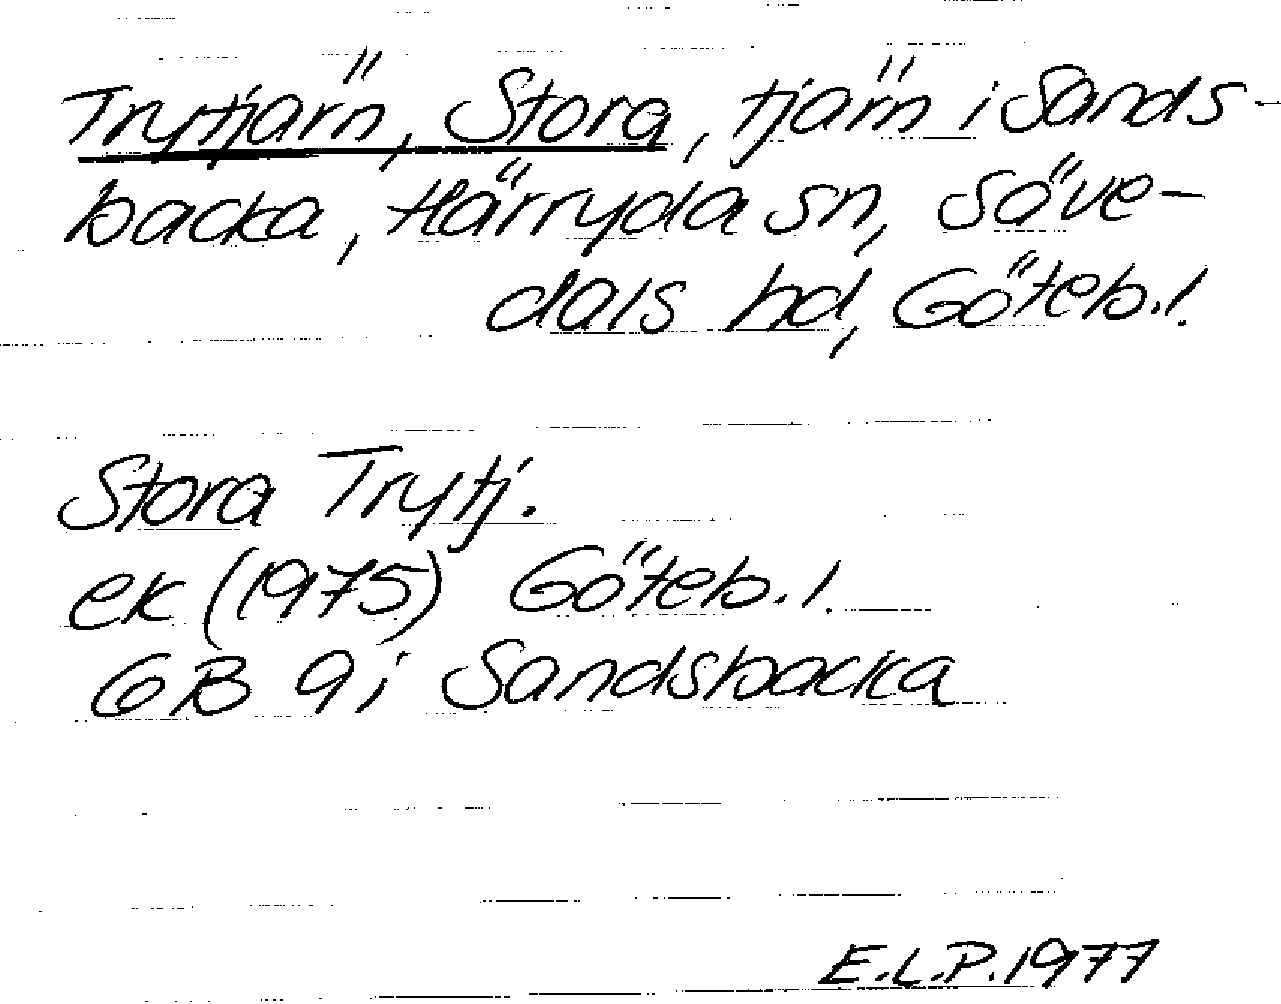 Trytjärn, Stora, tjärn i Sands-
backa, Härryda sn, Säve-
dals hd, Göteb.l.
Stora Trytj.
ek (1975) Göteb.l.
GB 9i Sandsbacka
E.L.P. 1977